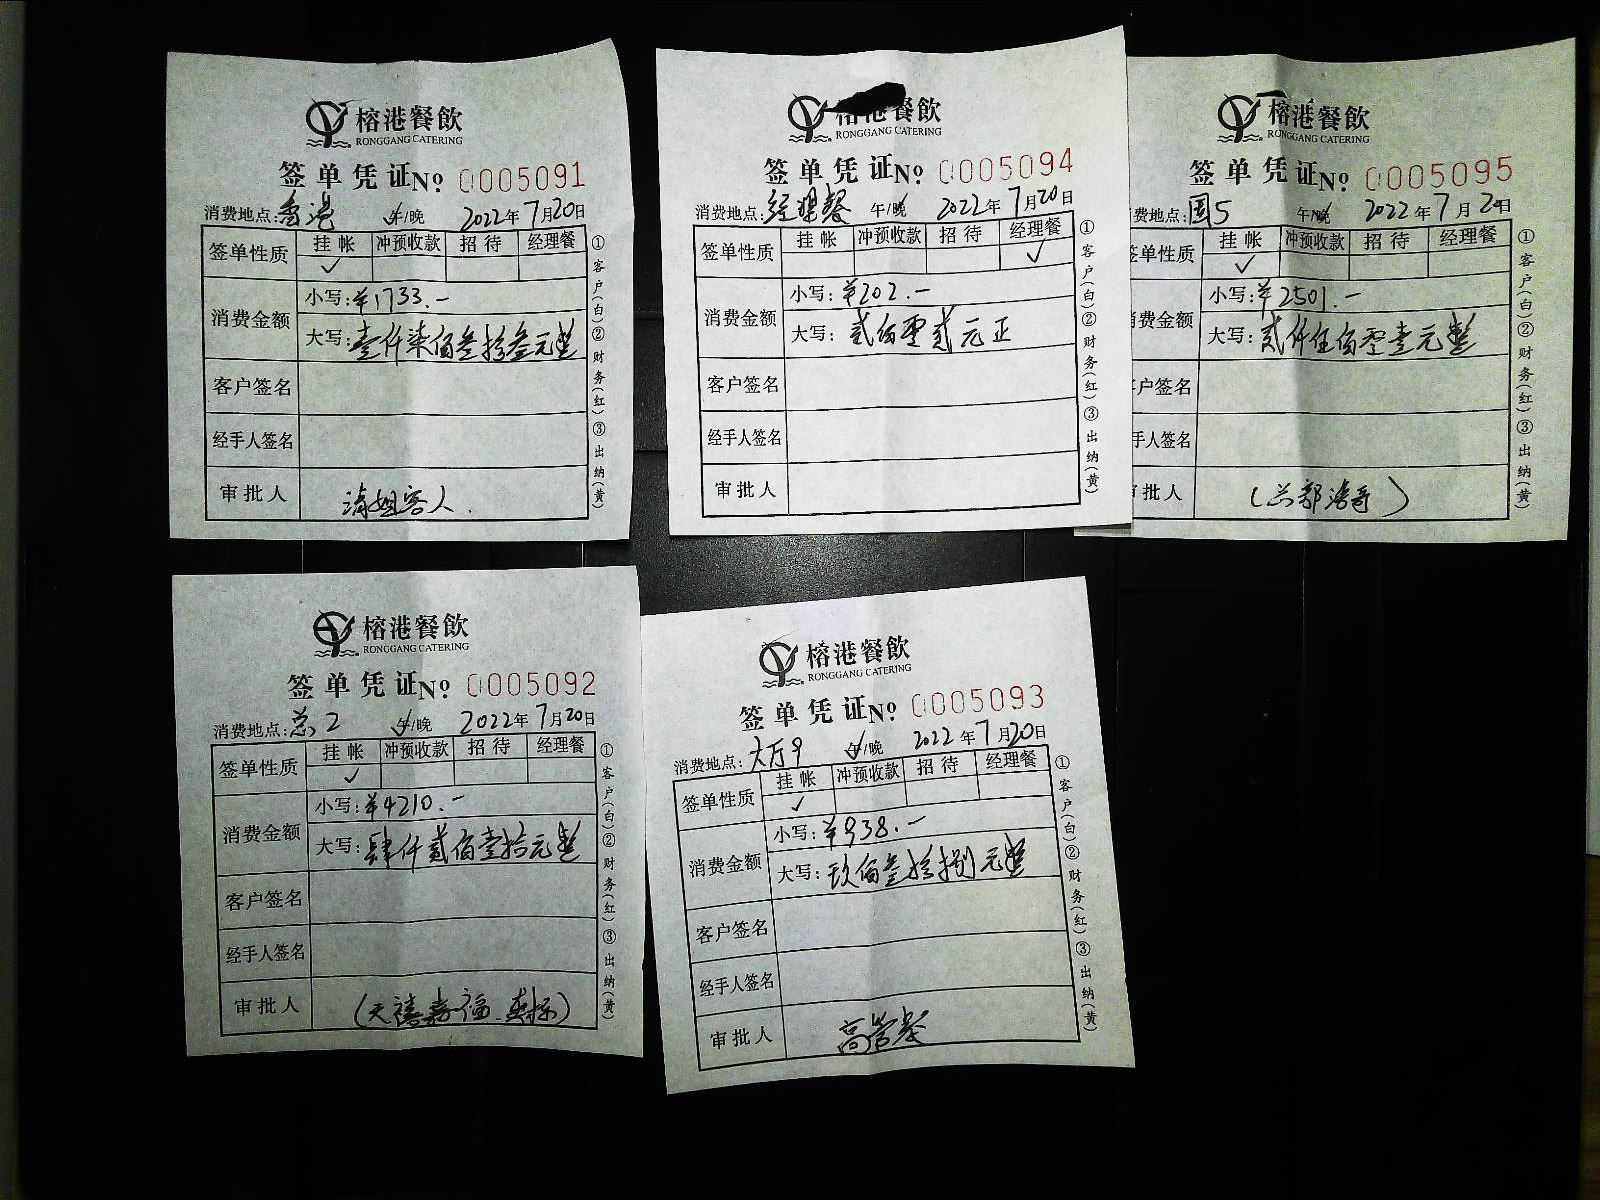 榕港餐飲
RONGGANG CATERING
签单凭证 No 0005091
消费地点: 香港 午/晚 2022年7月20日
签单性质 挂帐 冲预收款 招待 经理餐
✓
消费金额 小写: ¥1733.-
大写: 壹仟柒佰叁拾叁元整
客户签名
经手人签名
审批人 请姐客人.
①客户(白)②财务(红)③出纳(黄)
榕港餐飲
RONGGANG CATERING
签单凭证 No 0005094
消费地点: 经理餐 午/晚 2022年7月20日
签单性质 挂帐 冲预收款 招待 经理餐
✓
消费金额 小写: ¥202.-
大写: 贰佰零贰元正
客户签名
经手人签名
审批人
①客户(白)②财务(红)③出纳(黄)
榕港餐飲
RONGGANG CATERING
签单凭证 No 0005095
费地点: 国5 午/晚 2022年7月20日
签单性质 挂帐 冲预收款 招待 经理餐
✓
费金额 小写: ¥2501.-
大写: 贰仟伍佰零壹元整
户签名
手人签名
审批人 (总部涛哥)
①客户(白)②财务(红)③出纳(黄)
榕港餐飲
RONGGANG CATERING
签单凭证 No 0005092
消费地点: 总2 午/晚 2022年7月20日
签单性质 挂帐 冲预收款 招待 经理餐
✓
消费金额 小写: ¥4210.-
大写: 肆仟贰佰壹拾元整
客户签名
经手人签名
审批人 (天禧嘉福.
①客户(白)②财务(红)③出纳(黄)
榕港餐飲
RONGGANG CATERING
签单凭证 No 0005093
消费地点: 大厅9 午/晚 2022年7月20日
签单性质 挂帐 冲预收款 招待 经理餐
✓
消费金额 小写: ¥938.-
大写: 玖佰叁拾捌元整
客户签名
经手人签名
审批人 高管餐
①客户(白)②财务(红)③出纳(黄)